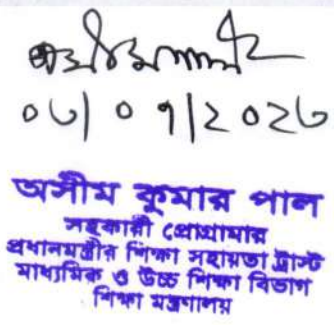 ০৩/০৭/২০২৩
অসীম কুমার পাল
সহকারী প্রোগ্রামার
প্রধানমন্ত্রীর শিক্ষা সহায়তা ট্রাস্ট
মাধ্যমিক ও উচ্চ শিক্ষা বিভাগ
শিক্ষা মন্ত্রণালয়